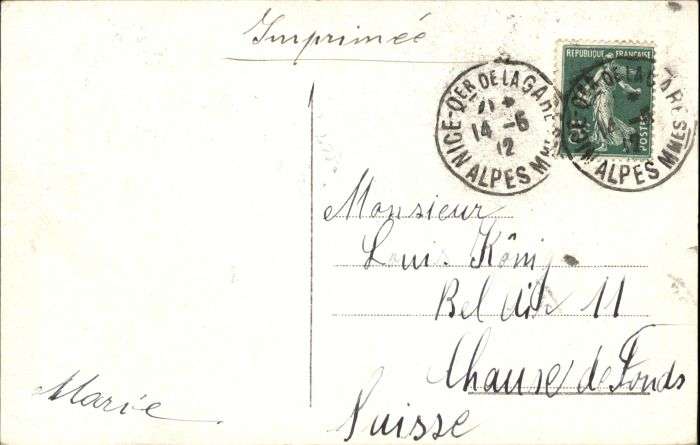 Imprimée
NICE-QER DE LA GARE
14 -5
12
ALPES MMES
REPUBLIQUE FRANÇAISE
POSTES
NICE-QER DE LA GARE
ALPES MMES
Monsieur
Louis König
Bel Air 11
Chause de Fonds
Suisse
Marie